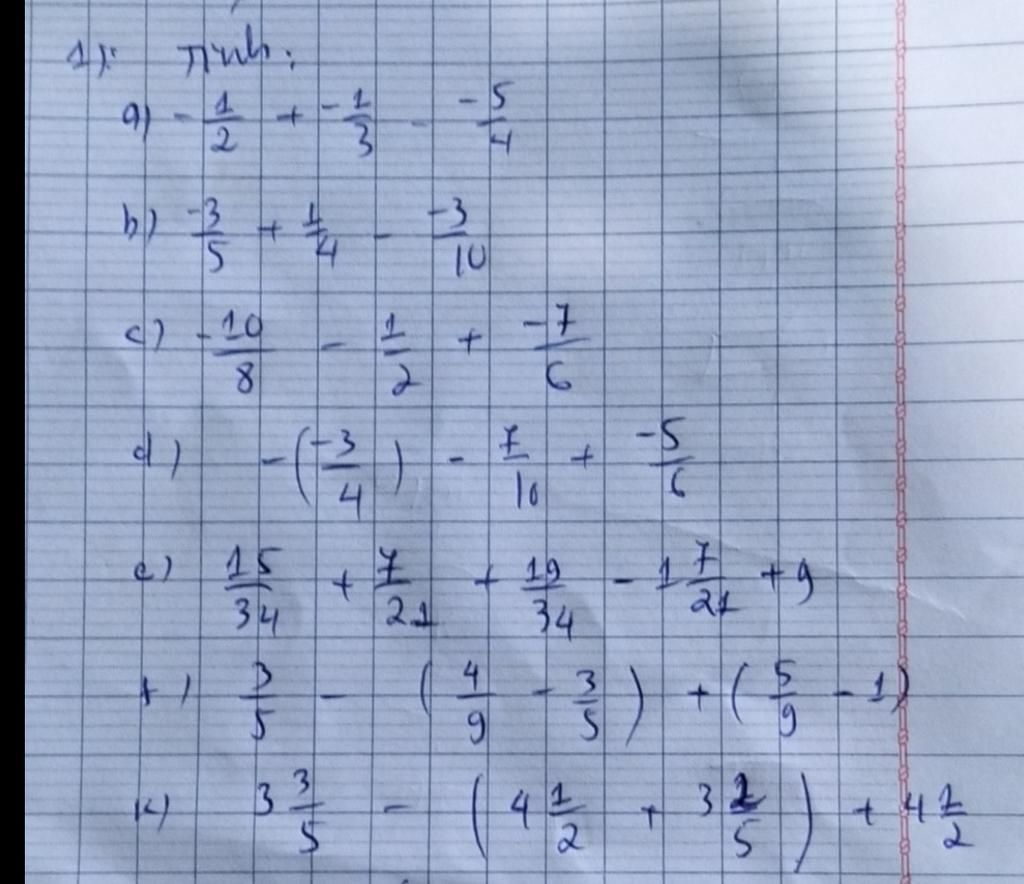 1): Tính:
a) -1/2 + -1/3 - -5/4
b) -3/5 + 1/4 - -3/10
c) -10/8 - 1/2 + -7/6
d) -(-3/4) - 7/10 + -5/6
e) 15/34 + 7/21 + 19/34 - 1 7/21 + 9
f) 3/5 - (4/9 - 3/5) + (5/9 - 1)
k) 3 3/5 - (4 1/2 + 3 /5) + 4 1/2